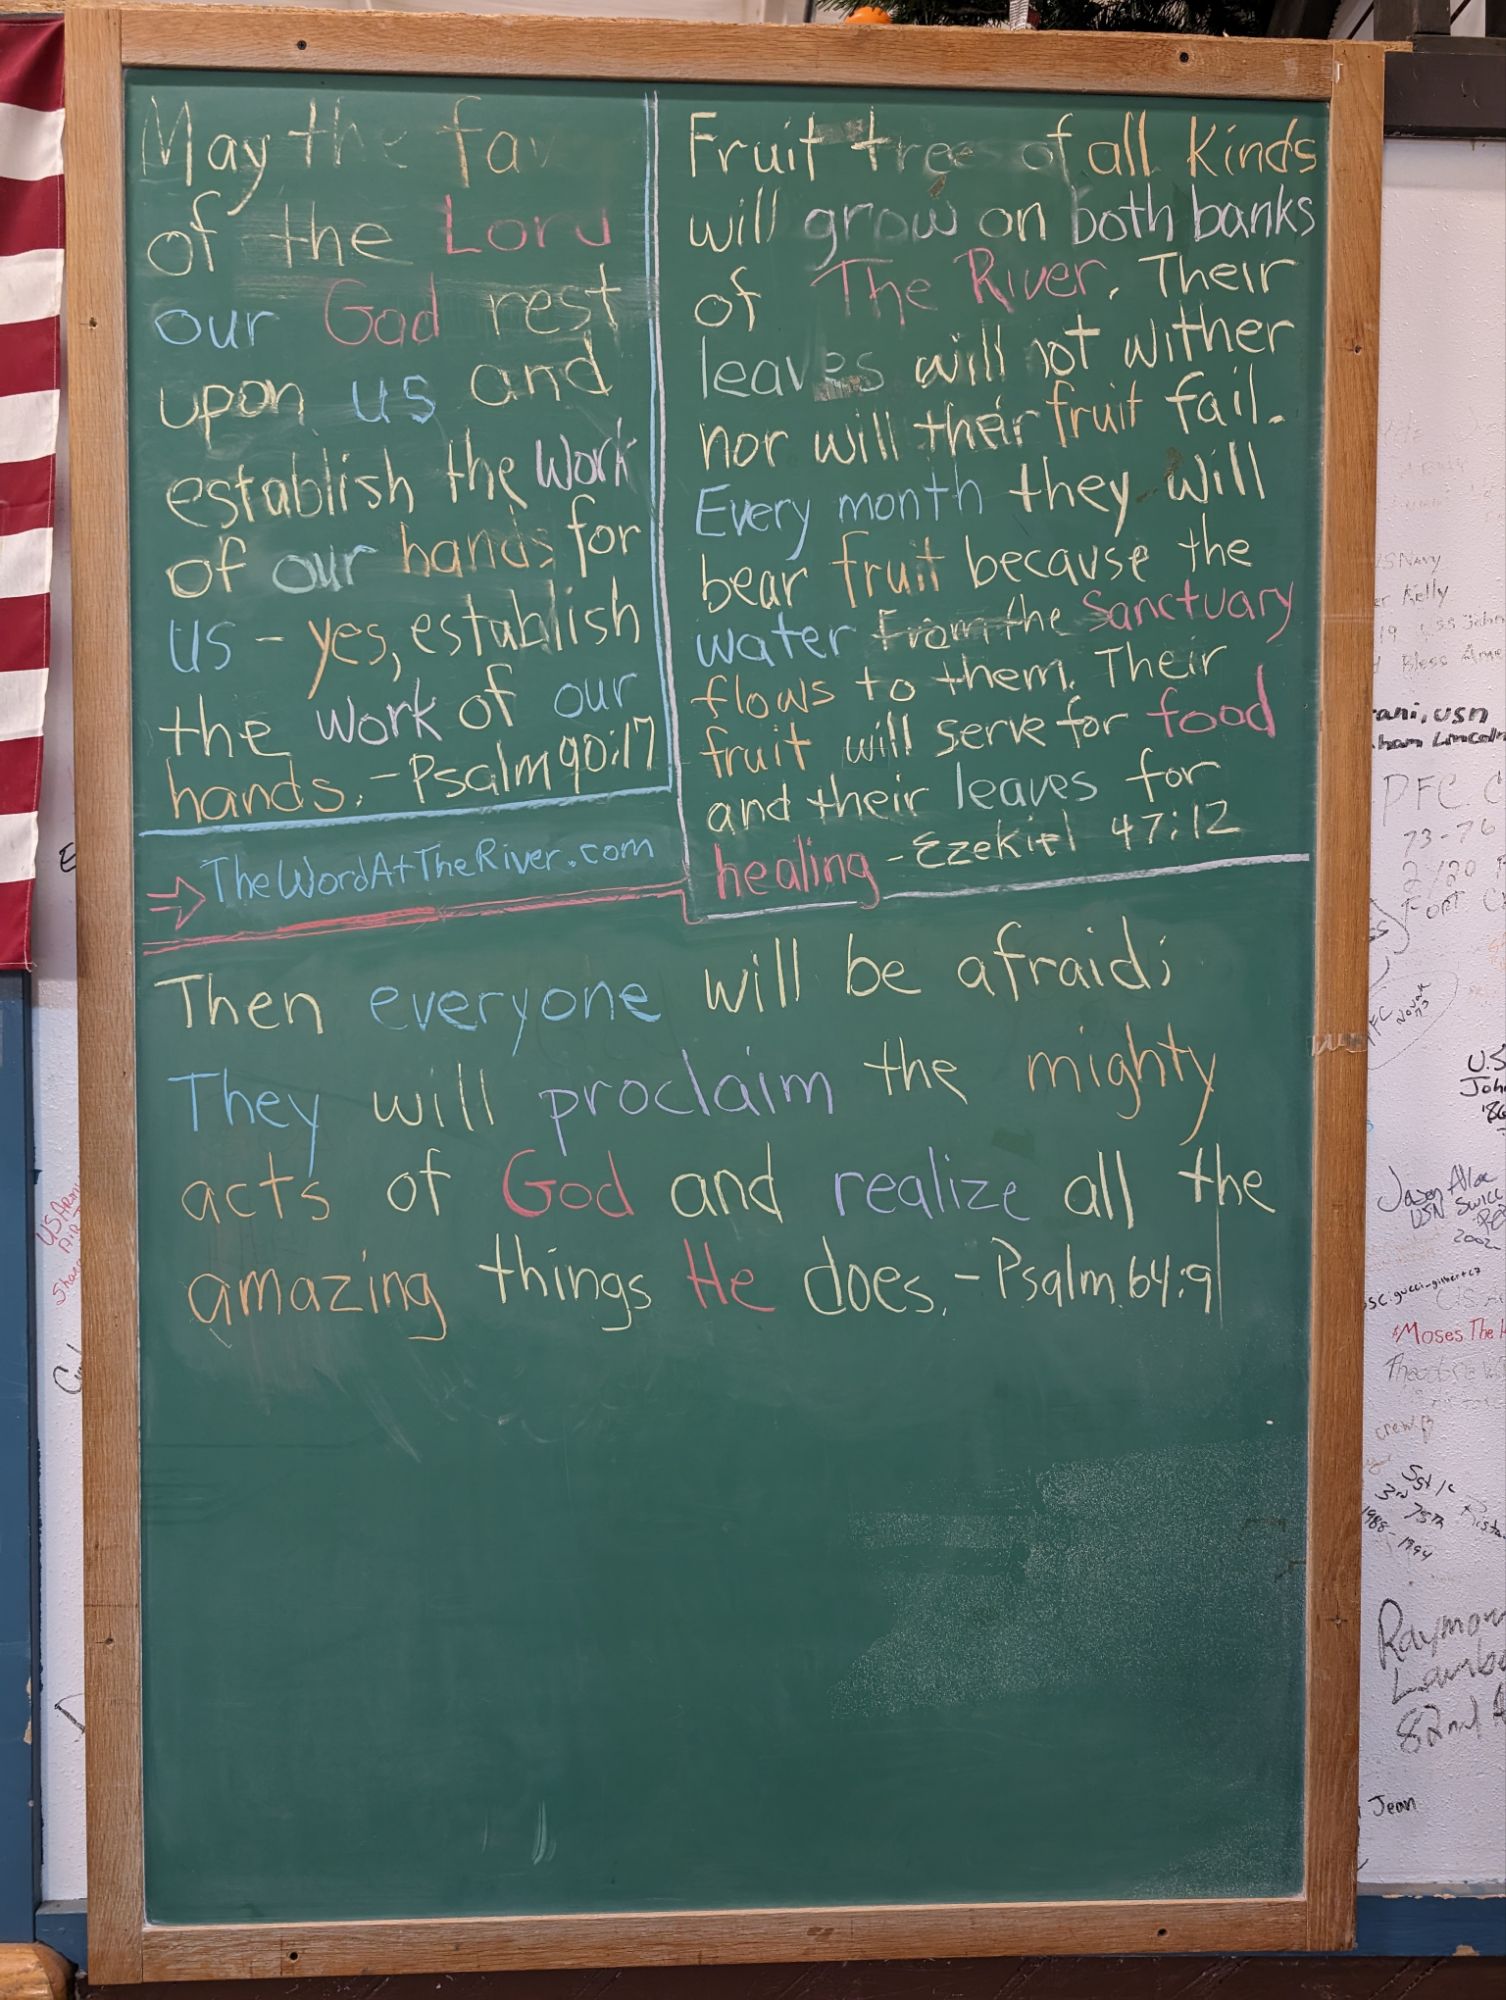 May the fav
of the Lord
our God rest
upon us and
establish the work
of our hands for
us - yes, establish
the work of our
hands. - Psalm 90:17
TheWordAtTheRiver.com
Fruit trees of all kinds
will grow on both banks
of The River. Their
leaves will not wither
nor will their fruit fail.
Every month they will
bear fruit because the
water from the Sanctuary
flows to them. Their
fruit will serve for food
and their leaves for
healing - Ezekiel 47:12
Then everyone will be afraid;
They will proclaim the mighty
acts of God and realize all the
amazing things He does. - Psalm 64:9
US Navy
Kelly
19 USS John
Bless Ame
rani, USN
ham Lincoln
PFC C
73-76
2/20
FORT C
U.S
John
'86
Jason
USN
2002
Moses The
Theodore
crew
3rd
75th
1988-1994
Raymon
82nd A
Jean
US Army